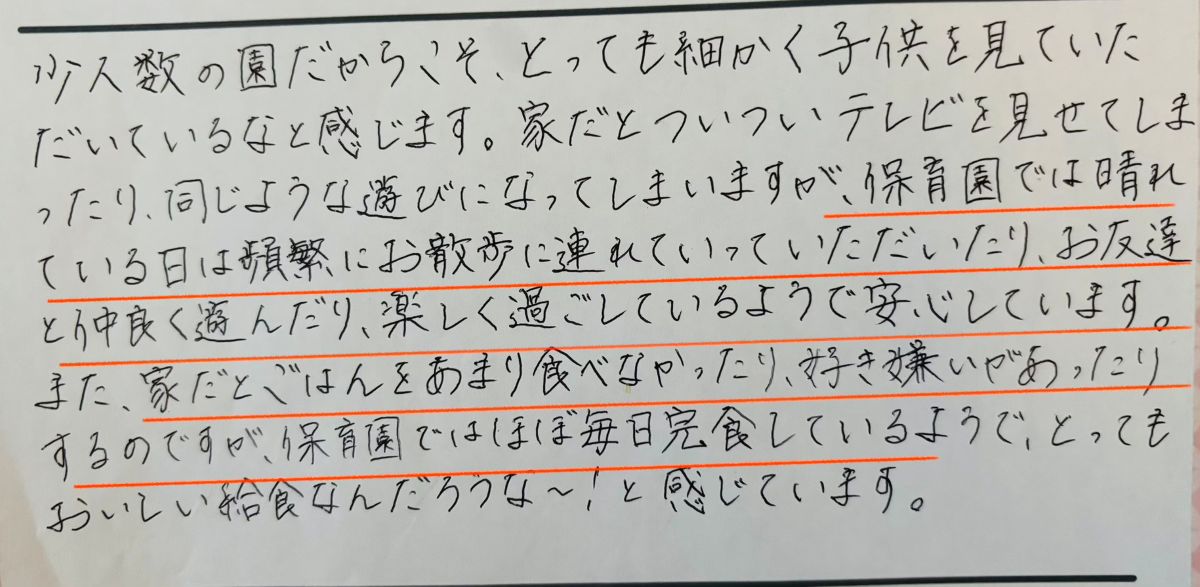 少人数の園だからこそ、とっても細かく子供を見ていた
だいているなと感じます。家だとついついテレビを見せてしま
ったり、同じような遊びになってしまいますが、保育園では晴れ
ている日は頻繁にお散歩に連れていっていただいたり、お友達
と仲良く遊んだり、楽しく過ごしているようで安心しています。
また、家だとごはんをあまり食べなかったり、好き嫌いがあったり
するのですが、保育園ではほぼ毎日完食しているようで、とっても
おいしい給食なんだろうな〜!と感じています。